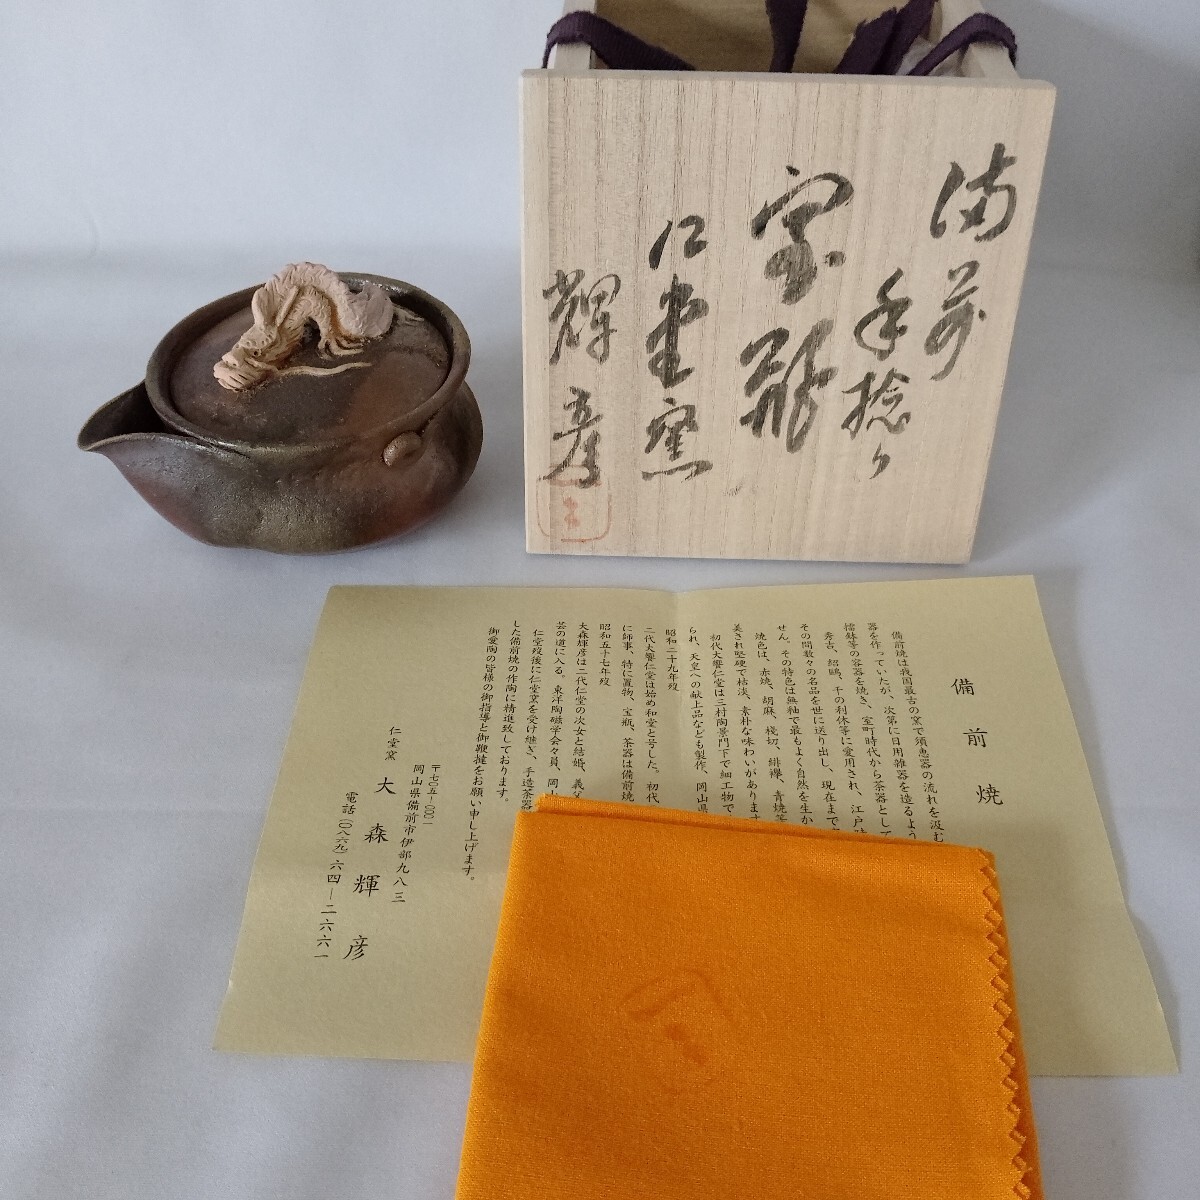 備前
手捻り
宝瓶
仁堂窯
輝彦
備前焼
備前焼は我国最古の窯で須恵器の流れを汲む
器を作っていたが、次第に日用雑器を造るよう
擂鉢等の容器を焼き、室町時代から茶器として
秀吉、紹鴎、千の利休等に愛用され、江戸時
その間数々の名品を世に送り出し、現在まで
せん。その特色は無釉で最もよく自然を生か
焼色は、赤焼、胡麻、棧切、緋襷、青焼等
美され堅硬で枯淡、素朴な味わいがあります
初代大饗仁堂は三村陶景門下で細工物で、
られ、天皇への献上品なども製作、岡山県
昭和二十九年歿
二代大饗仁堂は始め和堂と号した。初代
に師事、特に置物、宝瓶、茶器は備前焼
昭和五十七年歿
大森輝彦は二代仁堂の次女と結婚、義父
芸の道に入る。東洋陶磁学会々員、岡山
仁堂歿後に仁堂窯を受け継ぎ、手造茶器
した備前焼の作陶に精進致しております。
御愛陶の皆様の御指導と御鞭撻をお願い申し上げます。
〒七〇五-〇〇一
岡山県備前市伊部九八三
仁堂窯 大森輝彦
電話(〇八六九)六四-二六六一